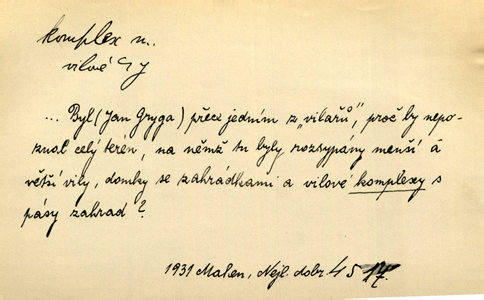 komplex m.
vilové
... Byl (Jan Gryga) přece jedním z „vilařů", proč by nepo-
znal celý terén, na němž tu byly rozsypány menší á
větší vily, domky se zahrádkami a vilové komplexy s
pásy zahrad?
1931 Maten, Nejl. dobr. 45